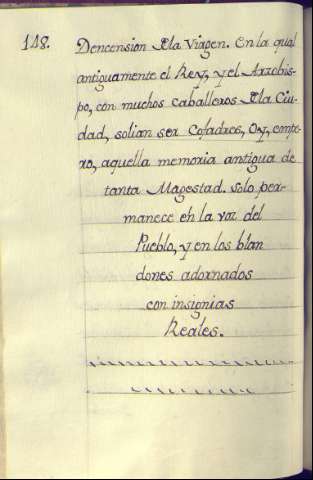 148.
Dencension Dela Virgen. En la qual
antiguamente el Rey, y el Arzobis-
po, con muchos caballeros Dela Ciu-
dad, solian ser Cofadres, Oy, empe-
ro, aquella memoria antigua de
tanta Magestad. solo per-
manece en la voz del
Pueblo, y en los blan
dones adornados
con insignias
Reales.